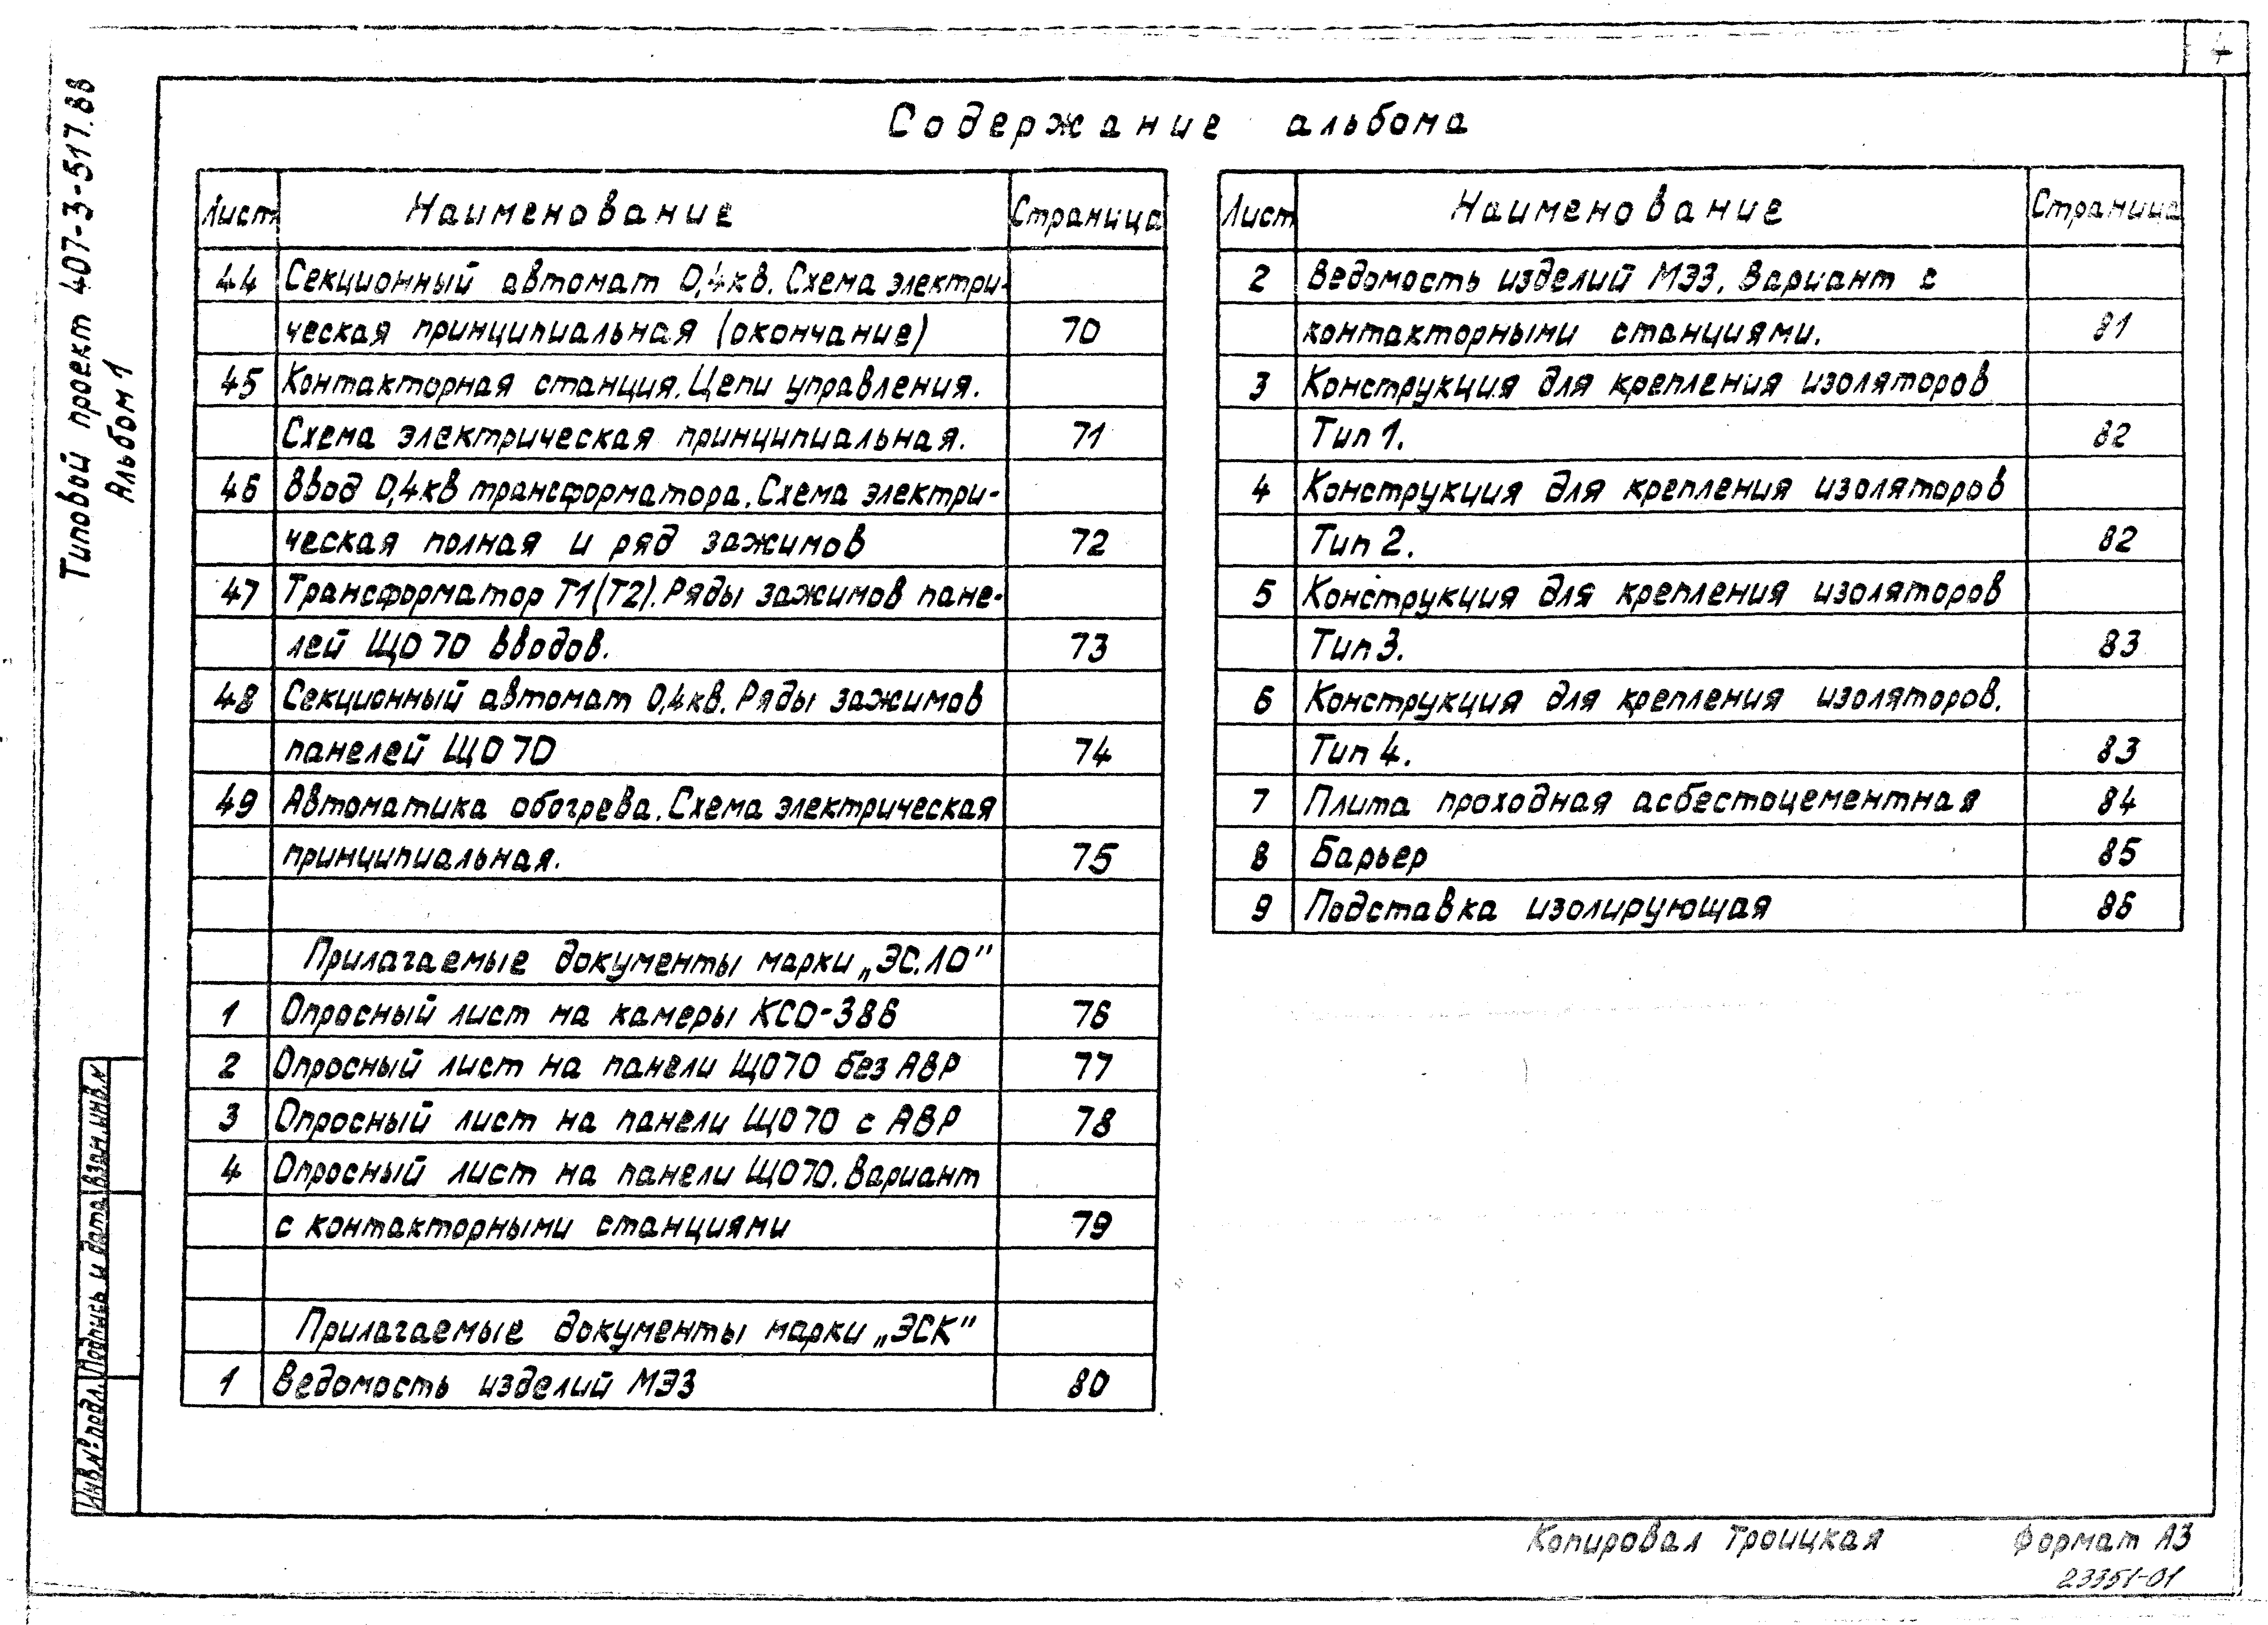 4
Типовой проект 407-3-517.88
Альбом 1
Содержание альбома
Лист Наименование Страница
44 Секционный автомат 0,4кв. Схема электри-
ческая принципиальная (окончание) 70
45 Контакторная станция. Цепи управления.
Схема электрическая принципиальная. 71
46 Ввод 0,4кв трансформатора. Схема электри-
ческая полная и ряд зажимов 72
47 Трансформатор Т1(Т2). Ряды зажимов пане-
лей ЩО70 вводов. 73
48 Секционный автомат 0,4кв. Ряды зажимов
панелей ЩО70 74
49 Автоматика обогрева. Схема электрическая
принципиальная. 75
Прилагаемые документы марки „ЭС.ЛО"
1 Опросный лист на камеры КСО-386 76
2 Опросный лист на панели ЩО70 без АВР 77
3 Опросный лист на панели ЩО70 с АВР 78
4 Опросный лист на панели ЩО70. Вариант
с контакторными станциями 79
Прилагаемые документы марки „ЭСК"
1 Ведомость изделий МЭЗ 80
Лист Наименование Страница
2 Ведомость изделий МЭЗ. Вариант с
контакторными станциями. 81
3 Конструкция для крепления изоляторов
Тип 1. 82
4 Конструкция для крепления изоляторов
Тип 2. 82
5 Конструкция для крепления изоляторов
Тип 3. 83
6 Конструкция для крепления изоляторов.
Тип 4. 83
7 Плита проходная асбестоцементная 84
8 Барьер 85
9 Подставка изолирующая 86
Инв.№ подл. Подпись и дата Взам.инв.№
Копировал Троицкая Формат А3
23351-01